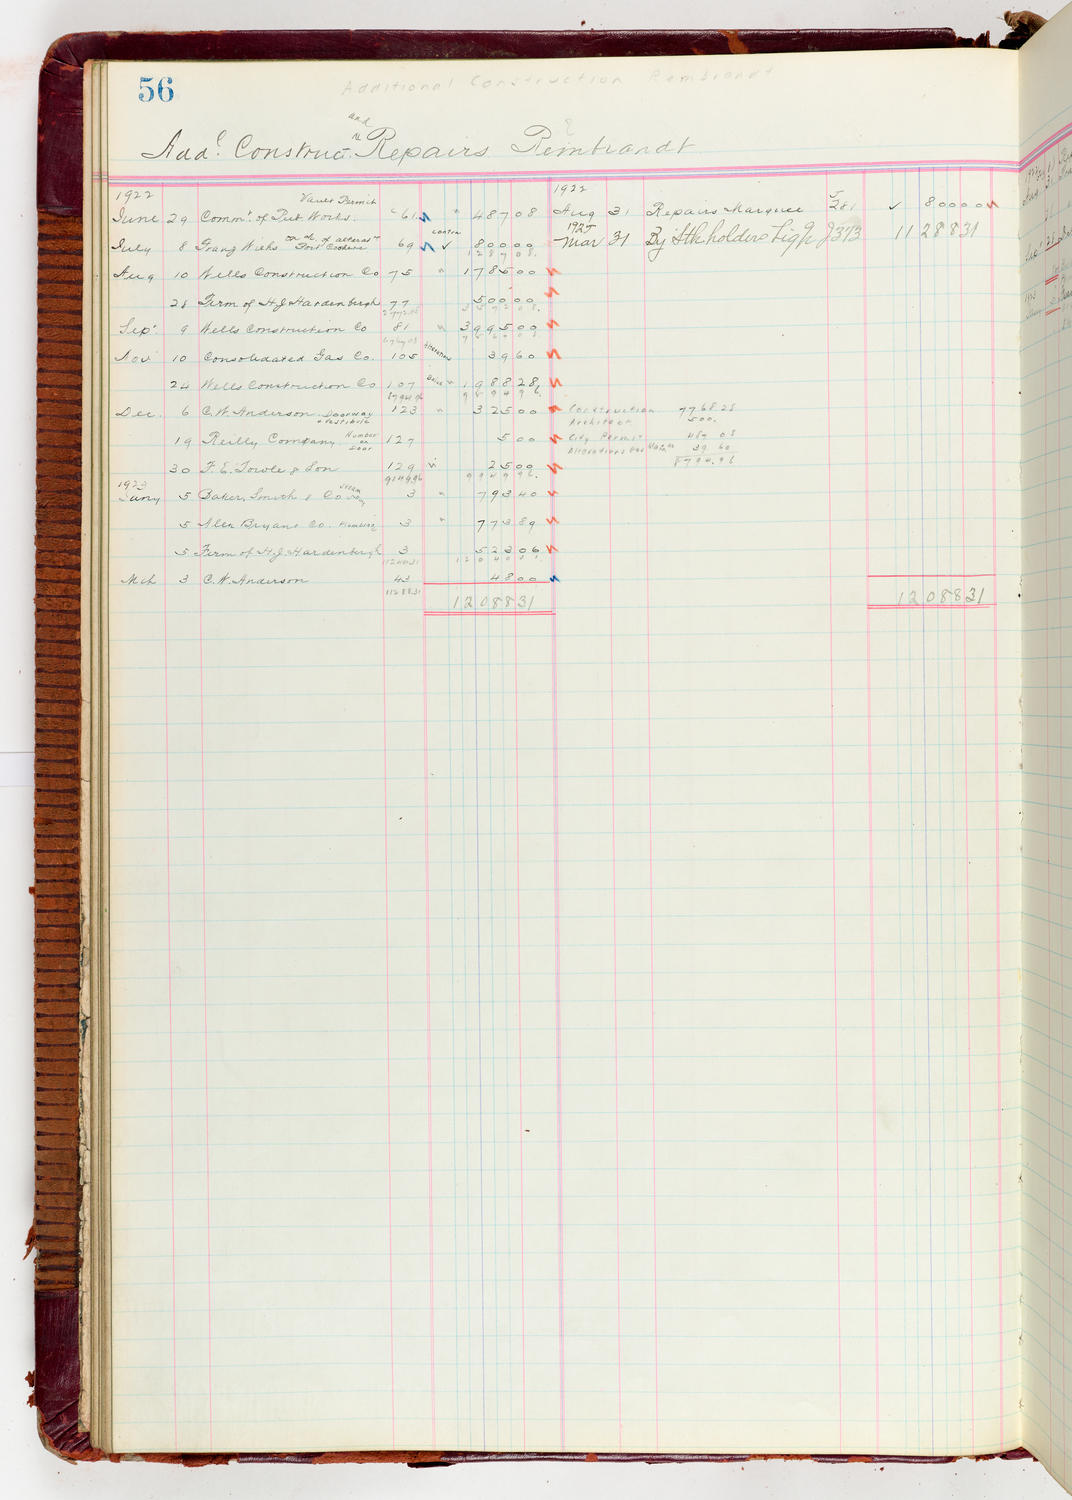 56
Additional Construction Rembrandt
and
Add'l Construct. Repairs Rembrandt
1922
Vault Permit
June 29 Comm'r of Pub Works. 61 " 487 08
contra
July 8 Franz Wicks on ac. of alterats 69 ✓ 800 00
1287.08.
Aug 10 Wells Construction Co 75 " 1785 00
28 Firm of H.J. Hardenbergh 77 500 00
Sep' 9 Wells Construction Co 81 " 3995 00
Nov 10 Consolidated Gas Co. 105 39 60
24 Wells Construction Co 107 " 1988 28
8794 96
Dec. 6 C.W. Anderson. Doorway + Vestibule 123 " 325 00
19 Reilly Company. Number on Door 127 5 00
30 F. E. Towle & Son 129 " 25 00
9149.96
1923
Jany 5 Baker, Smith & Co Steam 3 " 793 40
5 Alex Bryant Co. Plumbing 3 " 773 89
5 Firm of H.J. Hardenbergh 3 523 06
11240.31
Mch 3 C.W. Anderson 43 48 00
11288.31
12088 31
1922
Aug 31 Repairs Marquee J 281 ✓ 800 00
1925
Mar 31 By Stkholders Liq'n J373 11288 31
Construction 7768.28
Architect 500.
City Permit 487 08
Alterations Gas Main 39 60
8794.96
12088 31